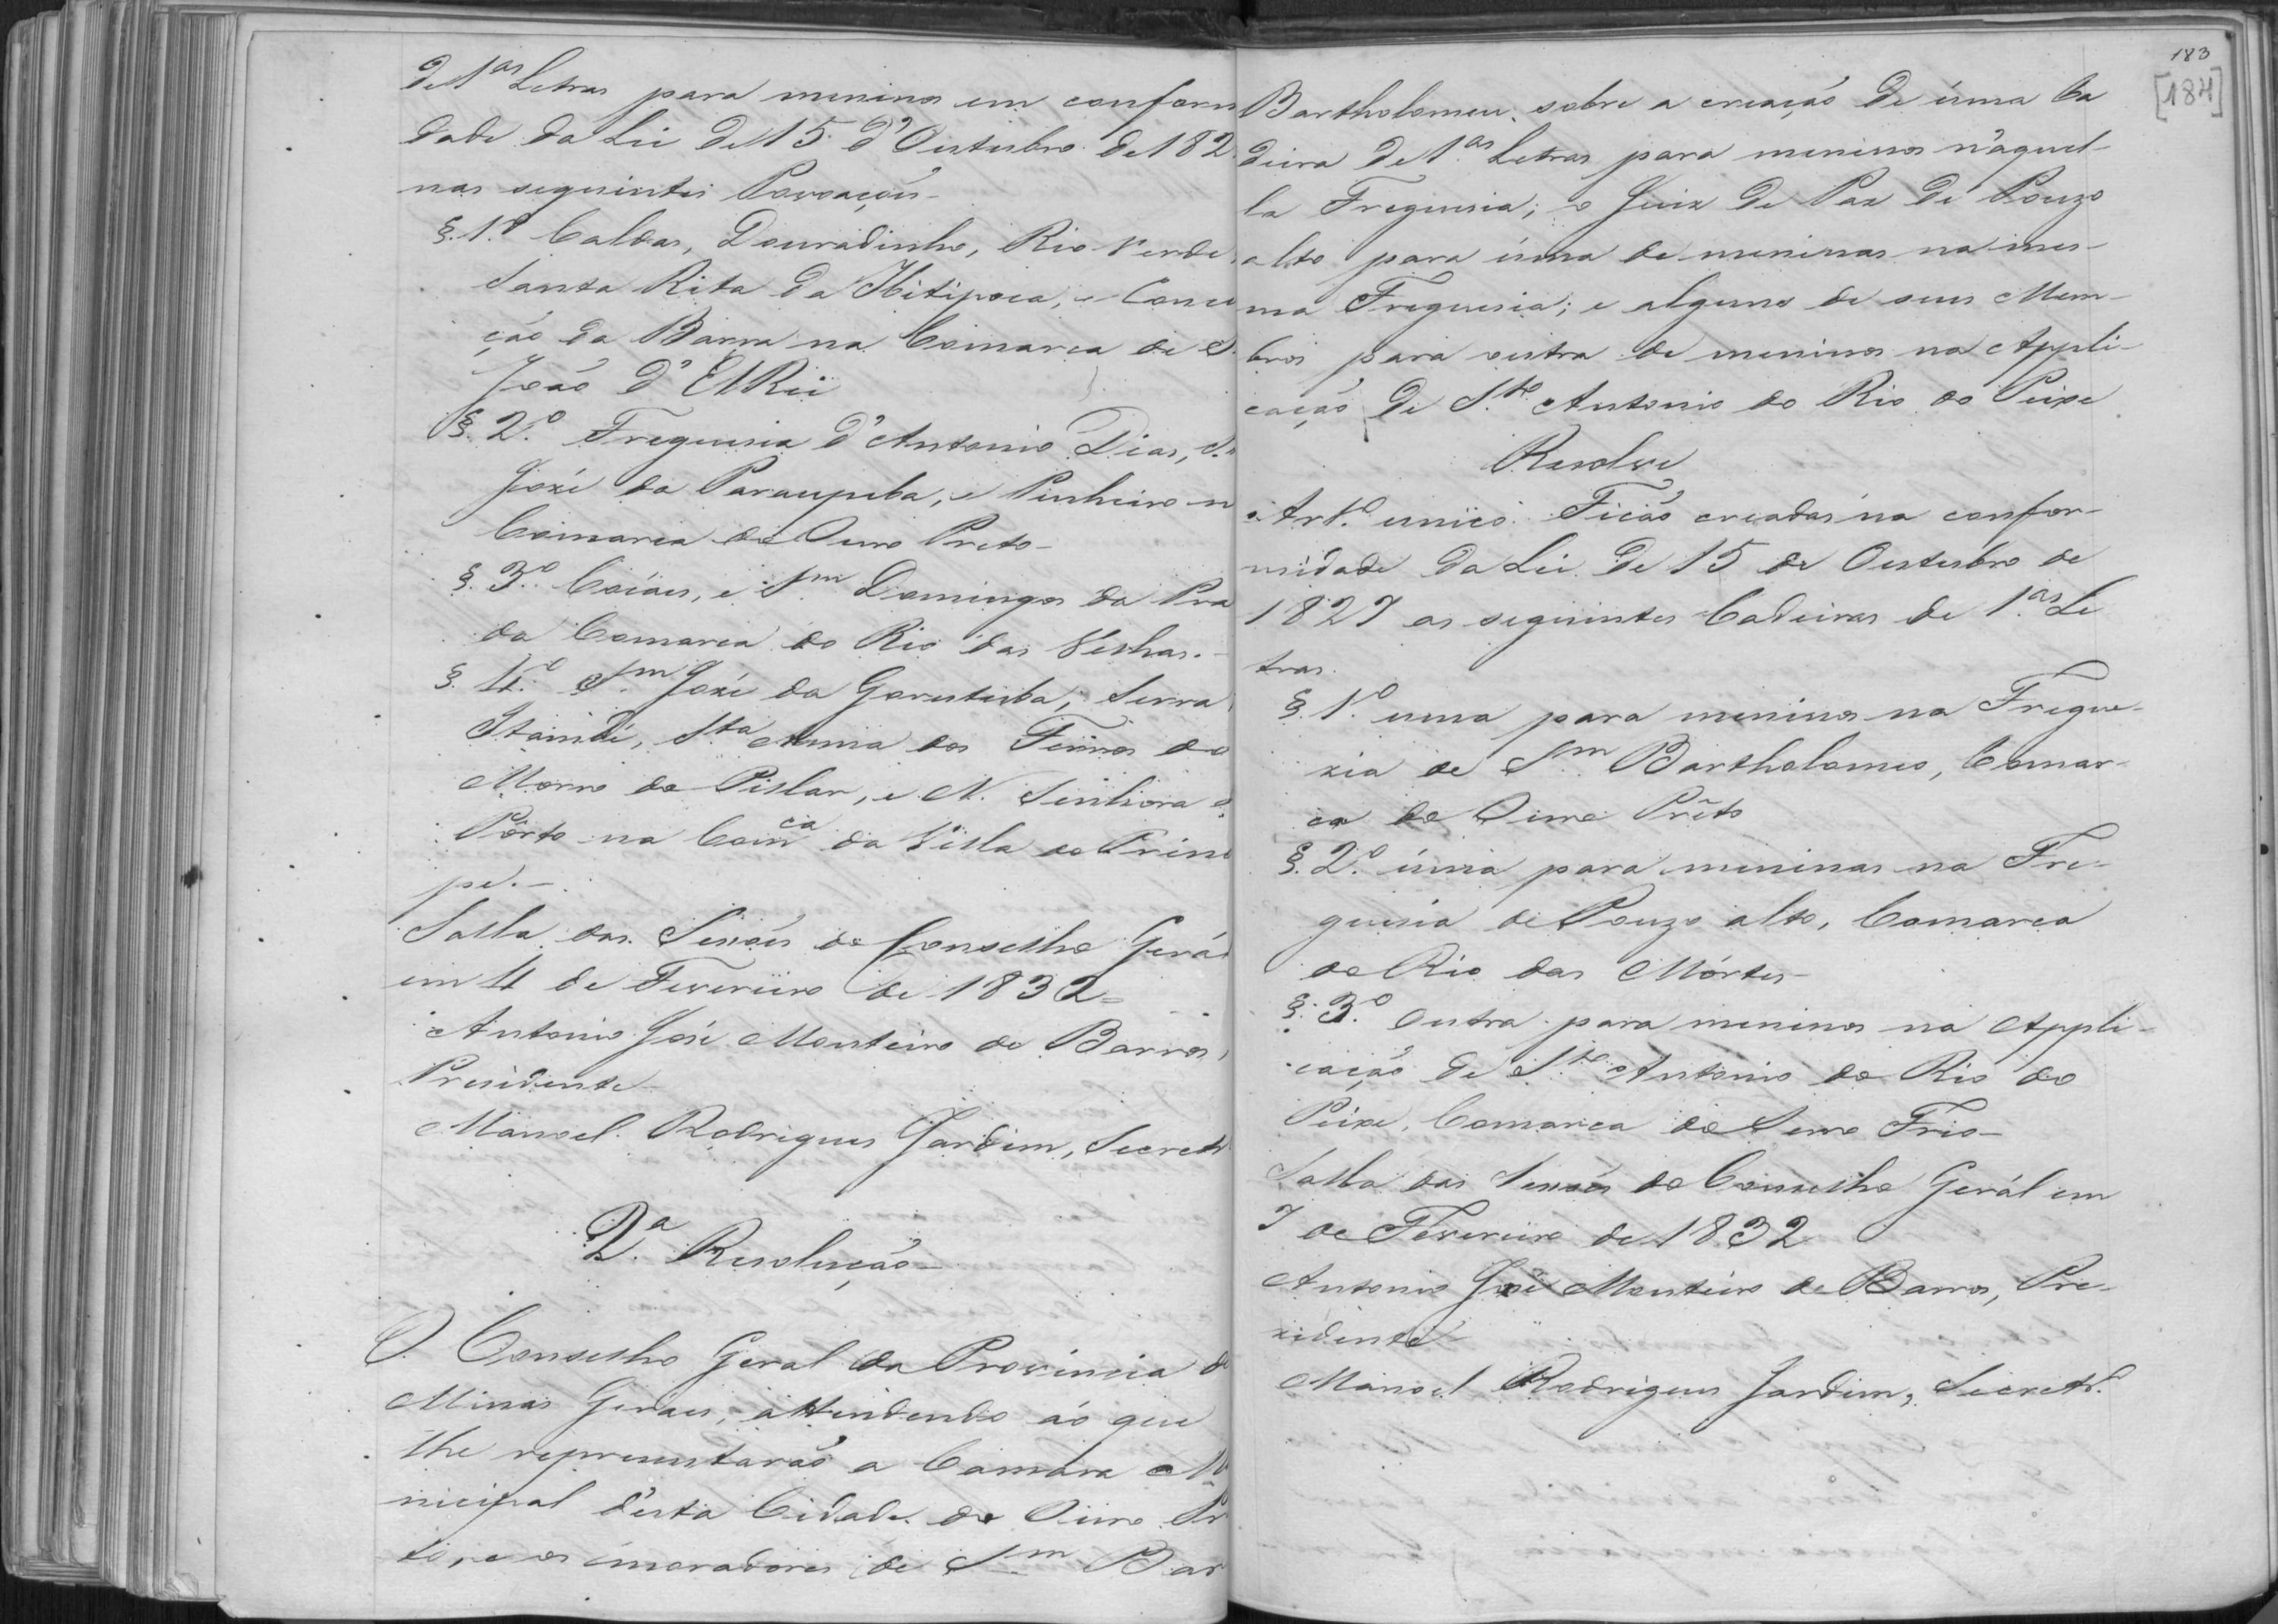 de 1.as Letras para meninos em conform
dade da Lei de 15 d'Outubro de 182
nas seguintes Povoações-
§. 1.º Caldas, Douradinho, Rio Verde,
Santa Rita da Ibitipoca, e Concei
ção da Barra na Comarca de S.
João d'ElRei
§. 2.º Freguesia d'Antonio Dias, S.
José da Paraupeba, e Pinheiro n
Comarca do Ouro Preto-
§. 3.º Cocáes, e S.m Domingos da Pra
da Comarca do Rio das Velhas.-
§. 4.º S.m José da Gorutuba, Serra
Itambé, S.ta Anna dos Ferros do
Morro do Pillar, e N. Senhora d
Pôrto na Comca da Villa do Princi
pe.-
Salla das Sessões do Conselho Gerál
em 4 de Fevereiro de 1832=
Antonio José Monteiro de Barros,
Presidente-
Manoel Rodrigues Jardim, Secretr
2.a Resolução-
O Conselho Geral da Provincia de
Minas Geraes, attendendo áo que
lhe representarão a Camara Mu
nicipal d'esta Cidade do Ouro Pr
to, e os moradores de S.m Bar
183
[184]
Bartholomeu sobre a creação de úma Ca
deira de 1.as Letras para meninos n'aquel-
la Freguesia; o Juiz de Paz de Pouzo
alto para úma de meninas na mes-
ma Freguesia; e alguns de seus Mem-
bros para outra de meninos na Appli-
cação de S.to Antonio do Rio do Peixe
Resolve
Art.º unico. Ficão creadas na confor-
midade da Lei de 15 de Outubro de
1827 as seguintes Cadeiras de 1.as Le
tras.
§. 1.º uma para meninos na Fregue-
zia de S.m Bartholomeo, Comar-
ca do Ouro Prêto
§. 2.º úma para meninas na Fre-
guesia de Pouzo alto, Comarca
do Rio das Mórtes-
§. 3.º Outra para meninos na Appli-
cação de S.to Antonio do Rio do
Peixe, Comarca do Serro Frio-
Salla das Sessões do Conselho Gerál em
7 de Fevereiro de 1832
Antonio José Monteiro de Barros, Pre-
zidente-
Manoel Rodrigues Jardim, Secretr.º